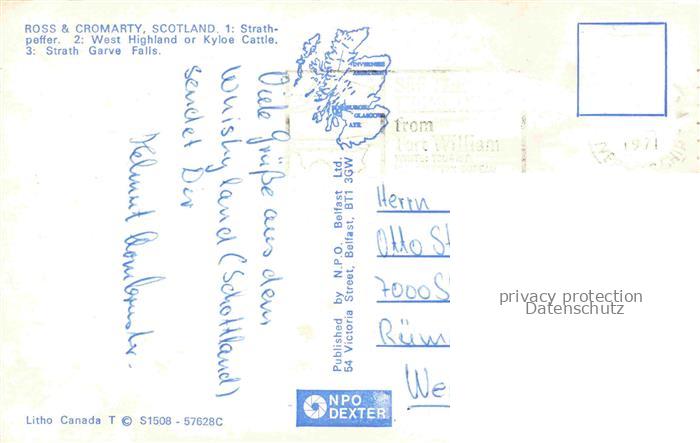 ROSS & CROMARTY, SCOTLAND. 1: Strath-
peffer. 2: West Highland or Kyloe Cattle.
3: Strath Garve Falls.
INVERNESS
EDINBURGH
GLASGOW
AYR
from
Fort William
1971
Viele Grüße aus dem
Whiskyland (Schottland)
sendet Dir
Helmut
Published by N.P.O. Belfast Ltd.
54 Victoria Street, Belfast, BT1 3GW
Herrn
Otto St
7000 S
Rüm
We
privacy protection
Datenschutz
NPO
DEXTER
Litho Canada T © S1508 - 57628C